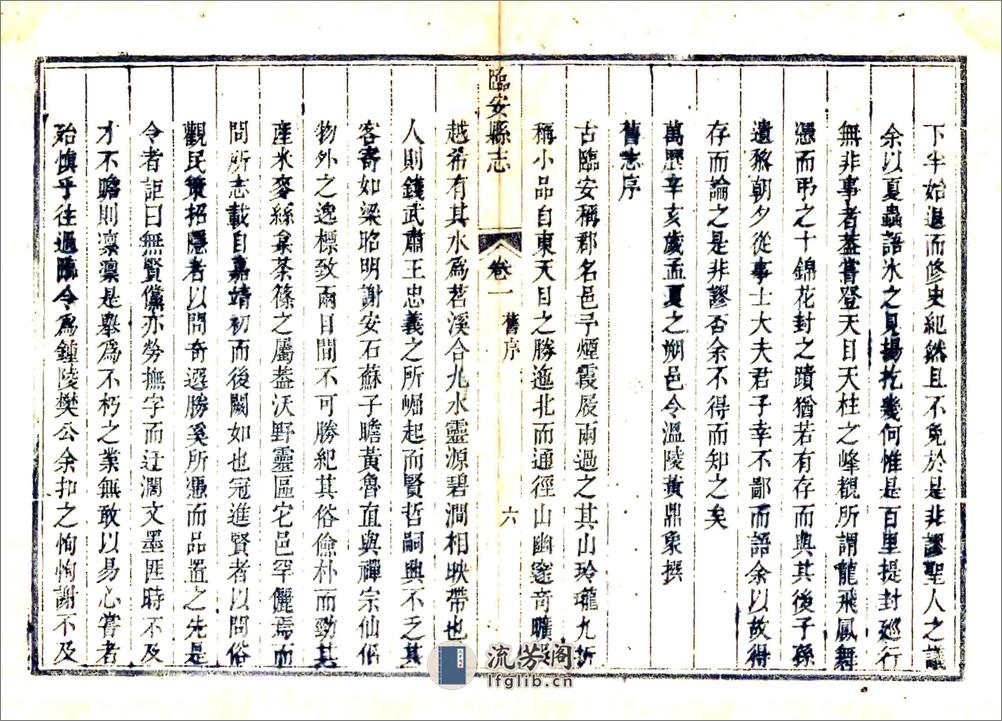 下牢始退而修史紀然且不免於是非謬聖人之議
余以夏蟲語冰之見揚扢幾何惟是百里提封廵行
無非事者葢嘗登天目天柱之峰觀所謂龍飛鳳舞
憑而弔之十錦花封之蹟猶若有存而與其後子孫
遺黎朝夕從事士大夫君子幸不鄙而語余以故得
存而論之是非謬否余不得而知之矣
萬曆辛亥歲孟夏之朔邑令溫陵黃鼎象撰
舊志序
古臨安稱郡名邑予煙霞屐兩過之其山玲瓏九折
稱小品自東天目之勝迤北而通徑山幽邃奇曠
越希有其水為苕溪合九水靈源碧澗相映帶也
人則錢武肅王忠義之所崛起而賢哲嗣興不乏其
客寄如梁昭明謝安石蘇子瞻黃魯直與禪宗仙侶
物外之逸標致兩目間不可勝紀其俗儉朴而勁其
產米麥絲枲茶篠之屬葢沃野靈區它邑罕儷焉而
問所志載自嘉靖初而後闕如也冠進賢者以問俗
觀民策招隱者以問奇選勝奚所憑而品置之先是
令者詎曰無賢黨亦勞撫字而迂濶文墨匪時不及
才不贍則凜凜是舉為不朽之業無敢以易心嘗者
殆慎乎往過臨令為鍾陵樊公余扣之恂恂謝不及
臨安縣志
卷一
舊序
六
流芳阁
lfglib.cn